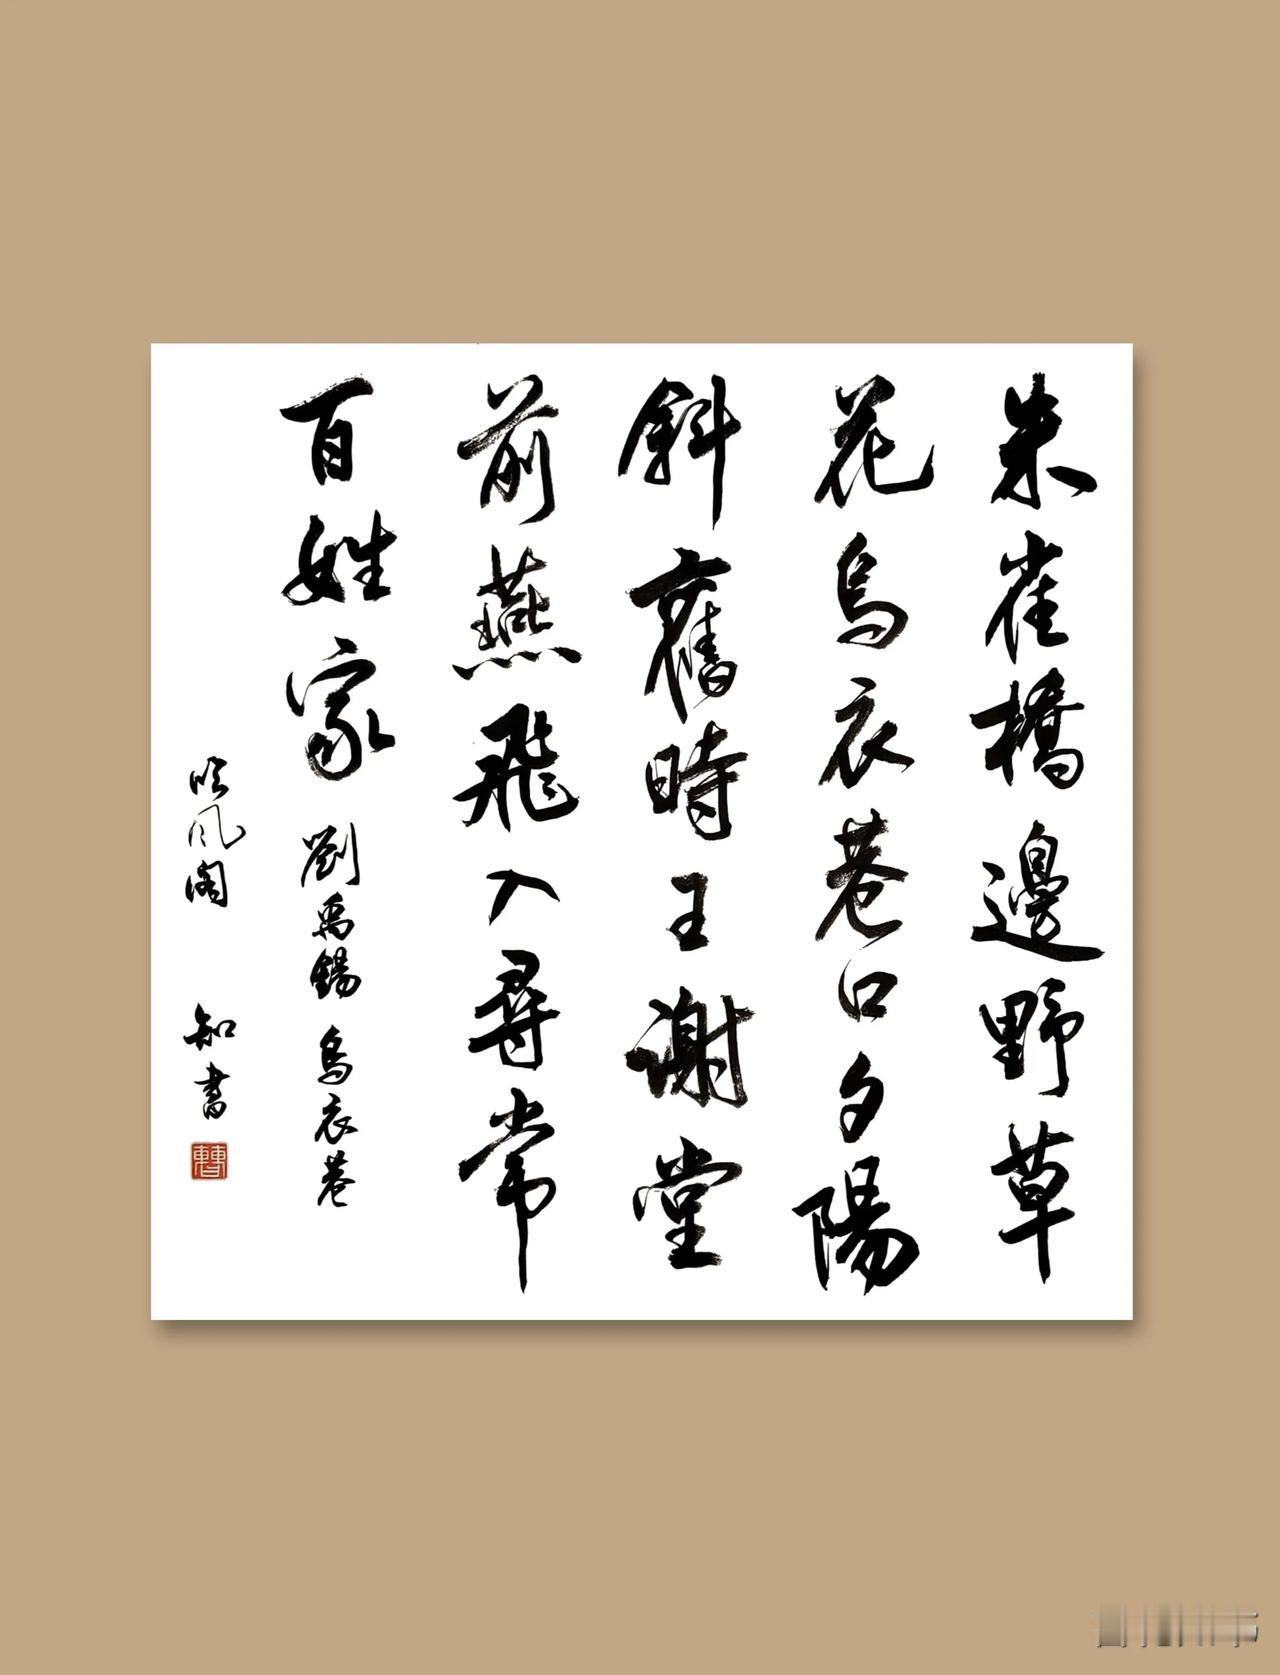 朱雀橋邊野草
花烏衣巷口夕陽
斜舊時王謝堂
前燕飛入尋常
百姓家 劉禹錫 烏衣巷
風閣 知書